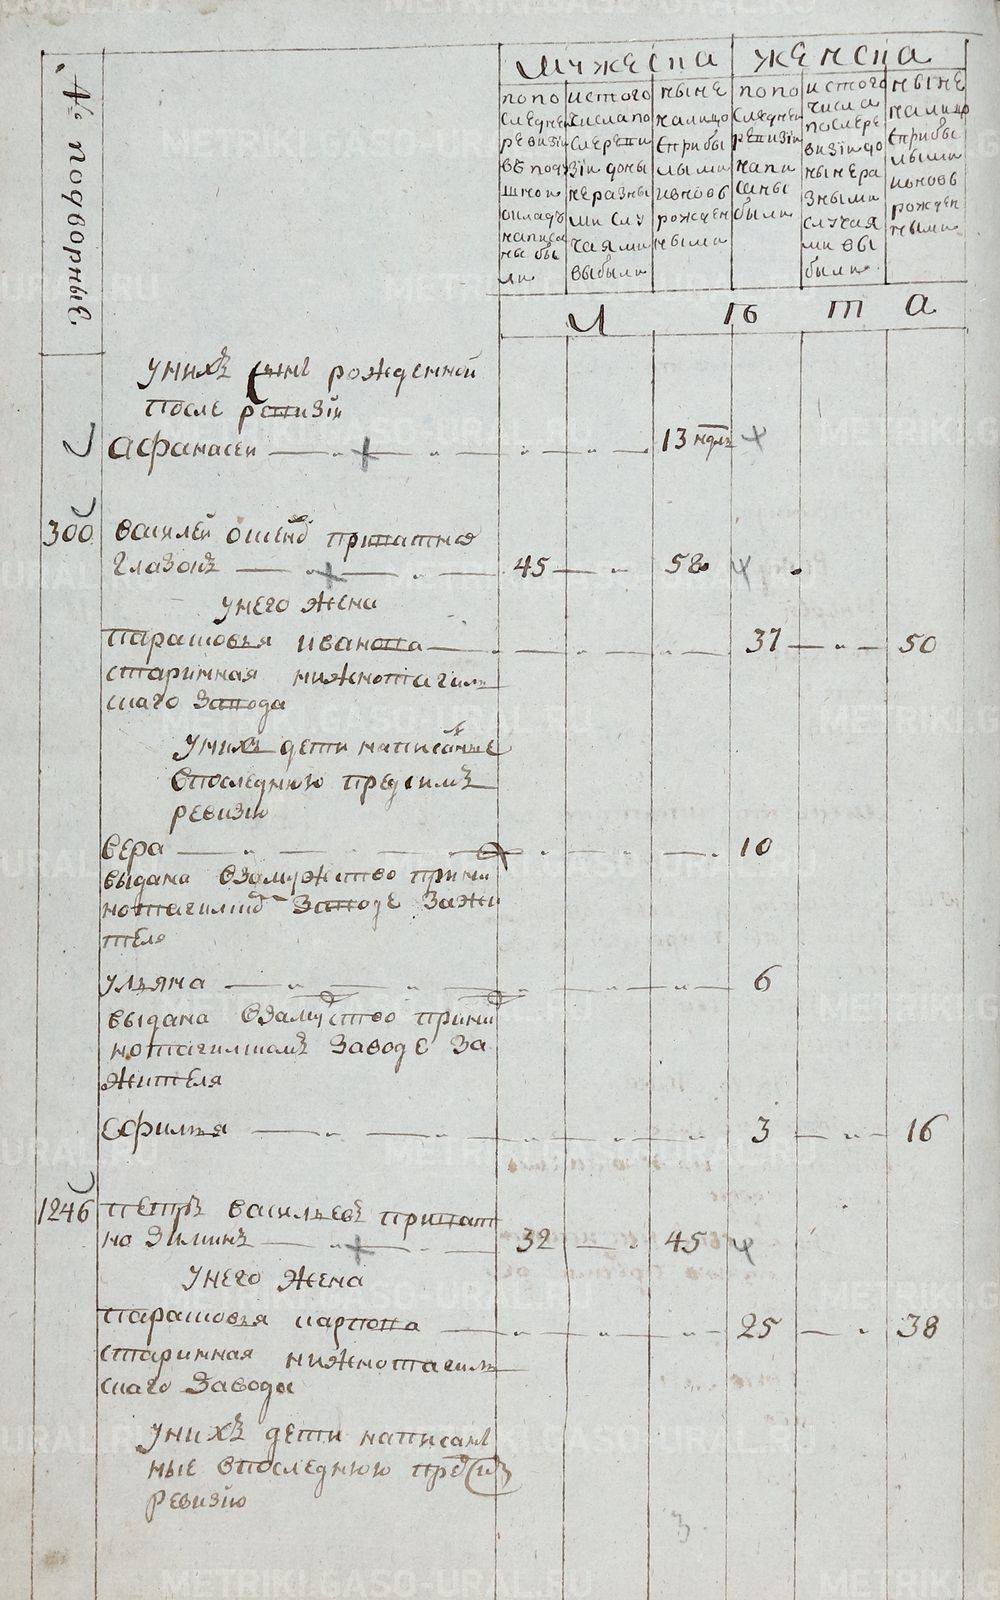 № подворные.
мужеска женска
по по следней ревизіи въ подушной окладъ написаны были
из того числа по сле ревизіи доны не разны ми слу чаями выбыли
ныне налицо с прибы лыми и вновь рожден ными
по по следней ревизіи напи саны были
из того числа после ре визіи до ныне ра зными случая ми вы были
ныне налицо с прибы лыми и вновь рожден ными
л ѣ т а
у нихъ сынъ рожденной
после ревизіи
Афанасей 13 недль
300 василей осиповъ приватно
глазовъ 45 58
у него жена
парасковья иванова 37 50
старинная нижнотагиль
скаго завода
у нихъ дети написанные
в последнюю пред симъ
ревизию
вера 10
выдана взамужество при ни
жнотагилскомъ заводе за жи
теля
ульяна 6
выдана взамуство при ни
жнотагилскомъ заводе за
жителя
Софилья 3 16
1246 петръ васильевъ приват
но Зиминъ 32 45
у него жена
парасковья карпова 25 38
старинная нижнотагиль
скаго завода
у нихъ дети написан
ные в последнюю пред симъ
ревизию
3
METRIKI.GASO-URAL.RU